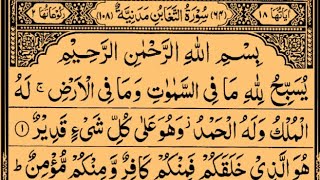 اٰیَاتُهَا ١٨ (٦٤) سُوْرَةُ التَّغَابُنِ مَدَنِيَّةٌ (١٠٨) رُكُوْعَاتُهَا ٢
بِسْمِ اللّٰهِ الرَّحْمٰنِ الرَّحِيْمِ
يُسَبِّحُ لِلّٰهِ مَا فِی السَّمٰوٰتِ وَمَا فِی الْاَرْضِ ۚ لَهُ
الْمُلْكُ وَلَهُ الْحَمْدُ ؗ وَهُوَ عَلٰی كُلِّ شَیْءٍ قَدِیْرٌ ①
هُوَ الَّذِیْ خَلَقَكُمْ فَمِنْكُمْ كَافِرٌ وَّمِنْكُمْ مُّؤْمِنٌ ؕ